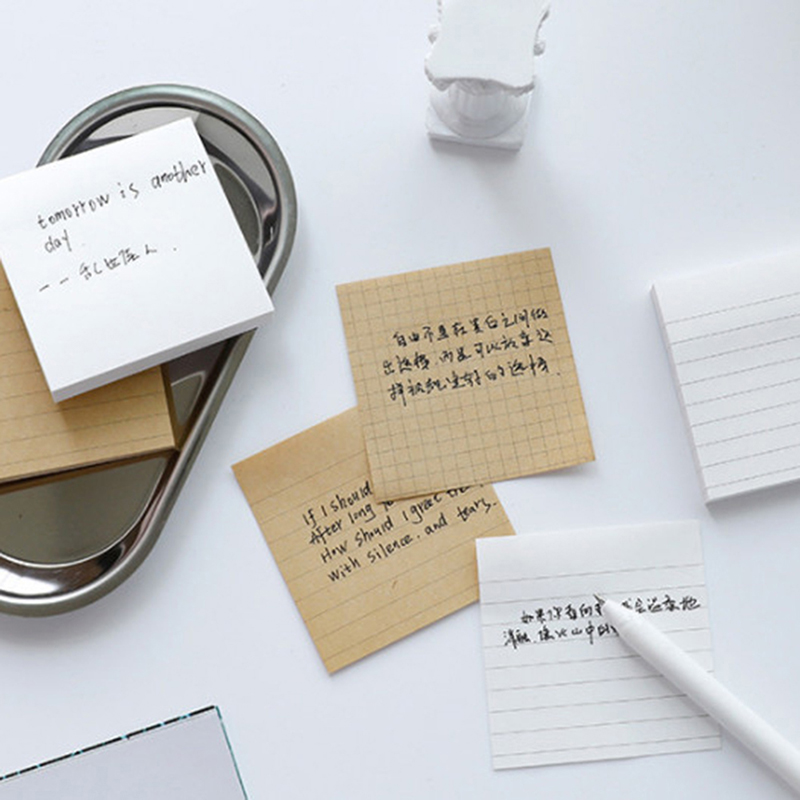 tomorrow is another
day.
－－乱世佳人.
自由不是在黑白之间做
出选择,而是可以放弃这
样被规定好的选择.
If I should
After long
How should I greet
with silence. and tears.
如果你有何 会温柔地
消融,像火山中的